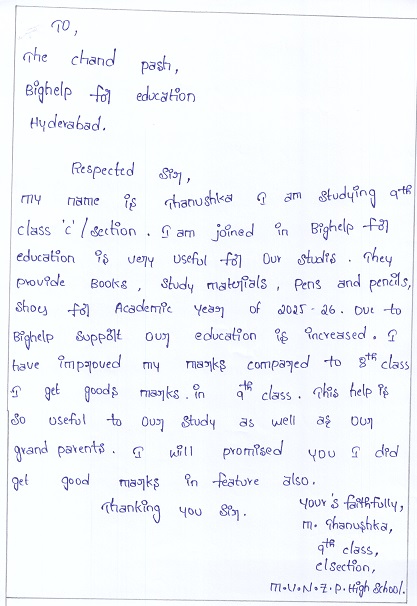 To,
The chand pash,
Bighelp for education
Hyderabad.
Respected Sir,
My name is Thanushka I am studying 9th
class 'c'/section. I am joined in Bighelp for
education is very useful for our studis. They
provide Books, study materials, pens and pencils,
shoes for Academic year of 2025-26. Due to
Bighelp support our education is increased. I
have improved my marks compared to 8th class
I get goods marks. in 9th class. This help is
so useful to our study as well as our
grand parents. I will promised you I did
get good marks in feature also.
Thanking you Sir.
Your's faithfully,
M. Thanushka,
9th class,
c/section,
M.V.N.Z.P. High School.